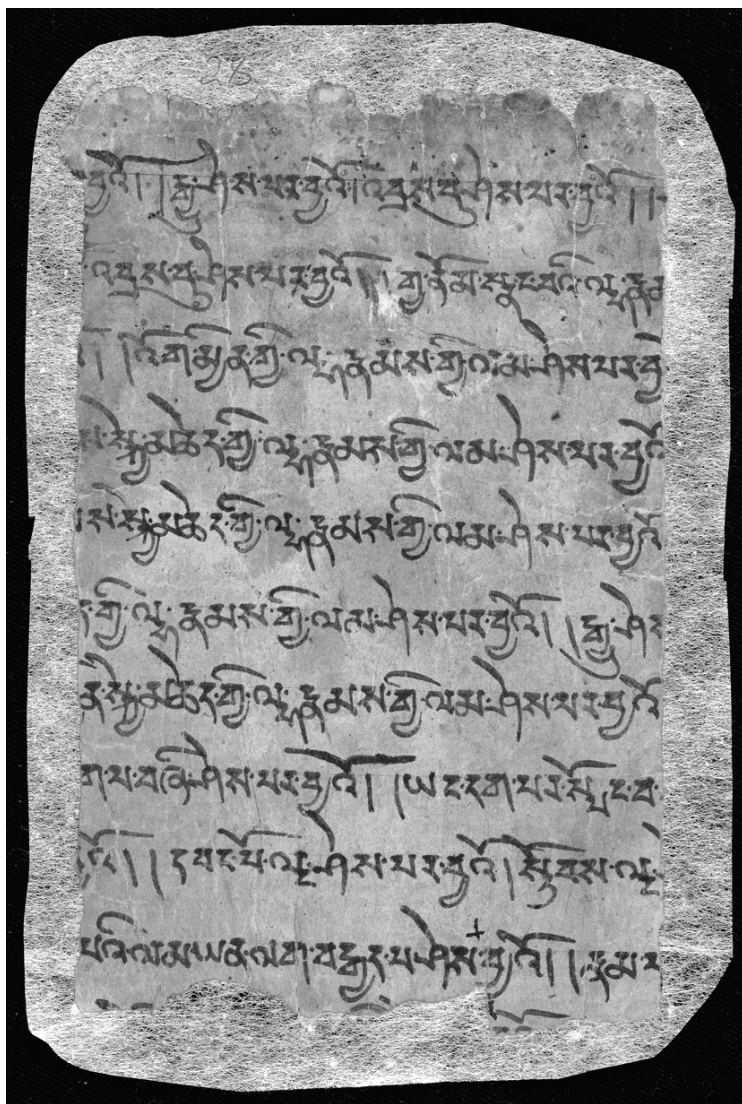 བྱའོ། །རྒྱུ་ཤེས་པར་བྱའོ།འབྲས་བུ་ཤེས་པར་བྱའོ།།
འབྲས་བུ་ཤེས་པར་བྱའོ།།གྱ་ནོམ་སྣང་བའི་ལྷ་རྣམ
། །འོག་མྱིན་གྱི་ལྷ་རྣམས་གྱི་ལམ་ཤེས་པར་བྱ
ས་སྐྱེ་མཆེད་གྱི་ལྷ་རྣམས་གྱི་ལམ་ཤེས་པར་བྱའོ
ས་སྐྱེ་མཆེད་གྱི་ལྷ་རྣམས་གྱི་ལམ་ཤེས་པར་བྱའོ
གྱི་ལྷ་རྣམས་གྱི་ལམ་ཤེས་པར་བྱའོ། །རྒྱུ་ཤེས
སྐྱེ་མཆེད་གྱི་ལྷ་རྣམས་གྱི་ལམ་ཤེས་པར་བྱའོ
ག་པ་བཞི་ཤེས་པར་བྱའོ། །ཡང་དག་པར་སྤོང་བ་
འོ།། དབང་པོ་ལྔ་ཤེས་པར་བྱའོ།སྟོབས་ལྔ་
པའི་ལམ་ཡན་ལག་བརྒྱད་པ་ཤེས་+བྱའོ། །རྣམ་པ